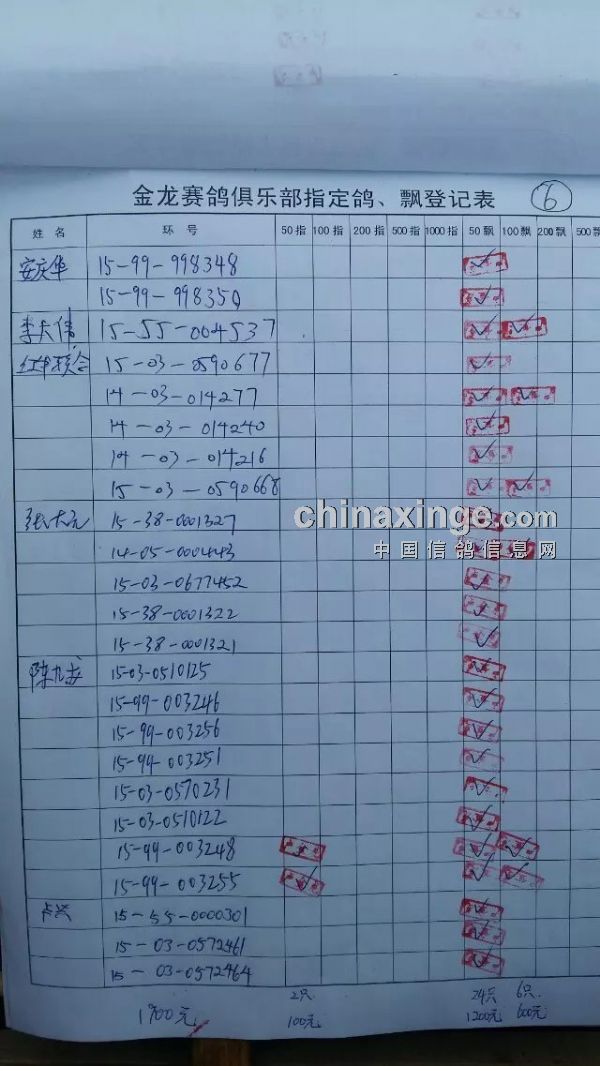 金龙赛鸽俱乐部指定鸽、飘登记表 ⑥
姓名 环号 50指 100指 200指 500指 1000指 50飘 100飘 200飘 500飘
安庆华 15-99-998348
15-99-998350
李天伟 15-55-004537
15-03-0590677
14-03-014277
14-03-014240
14-03-014216
15-03-0590668
chinaxinge.com
15-38-0001327
中国信鸽信息网
14-05-0004443
15-03-0677452
15-38-0001322
15-38-0001321
陈九龙 15-03-0510125
15-99-003246
15-99-003256
15-99-003251
15-03-0570231
15-03-0510122
15-99-003248
15-99-003255
卢兴 15-55-0000301
15-03-0572461
15-03-0572464
2只 24只 6只
1900元 100元 1200元 600元